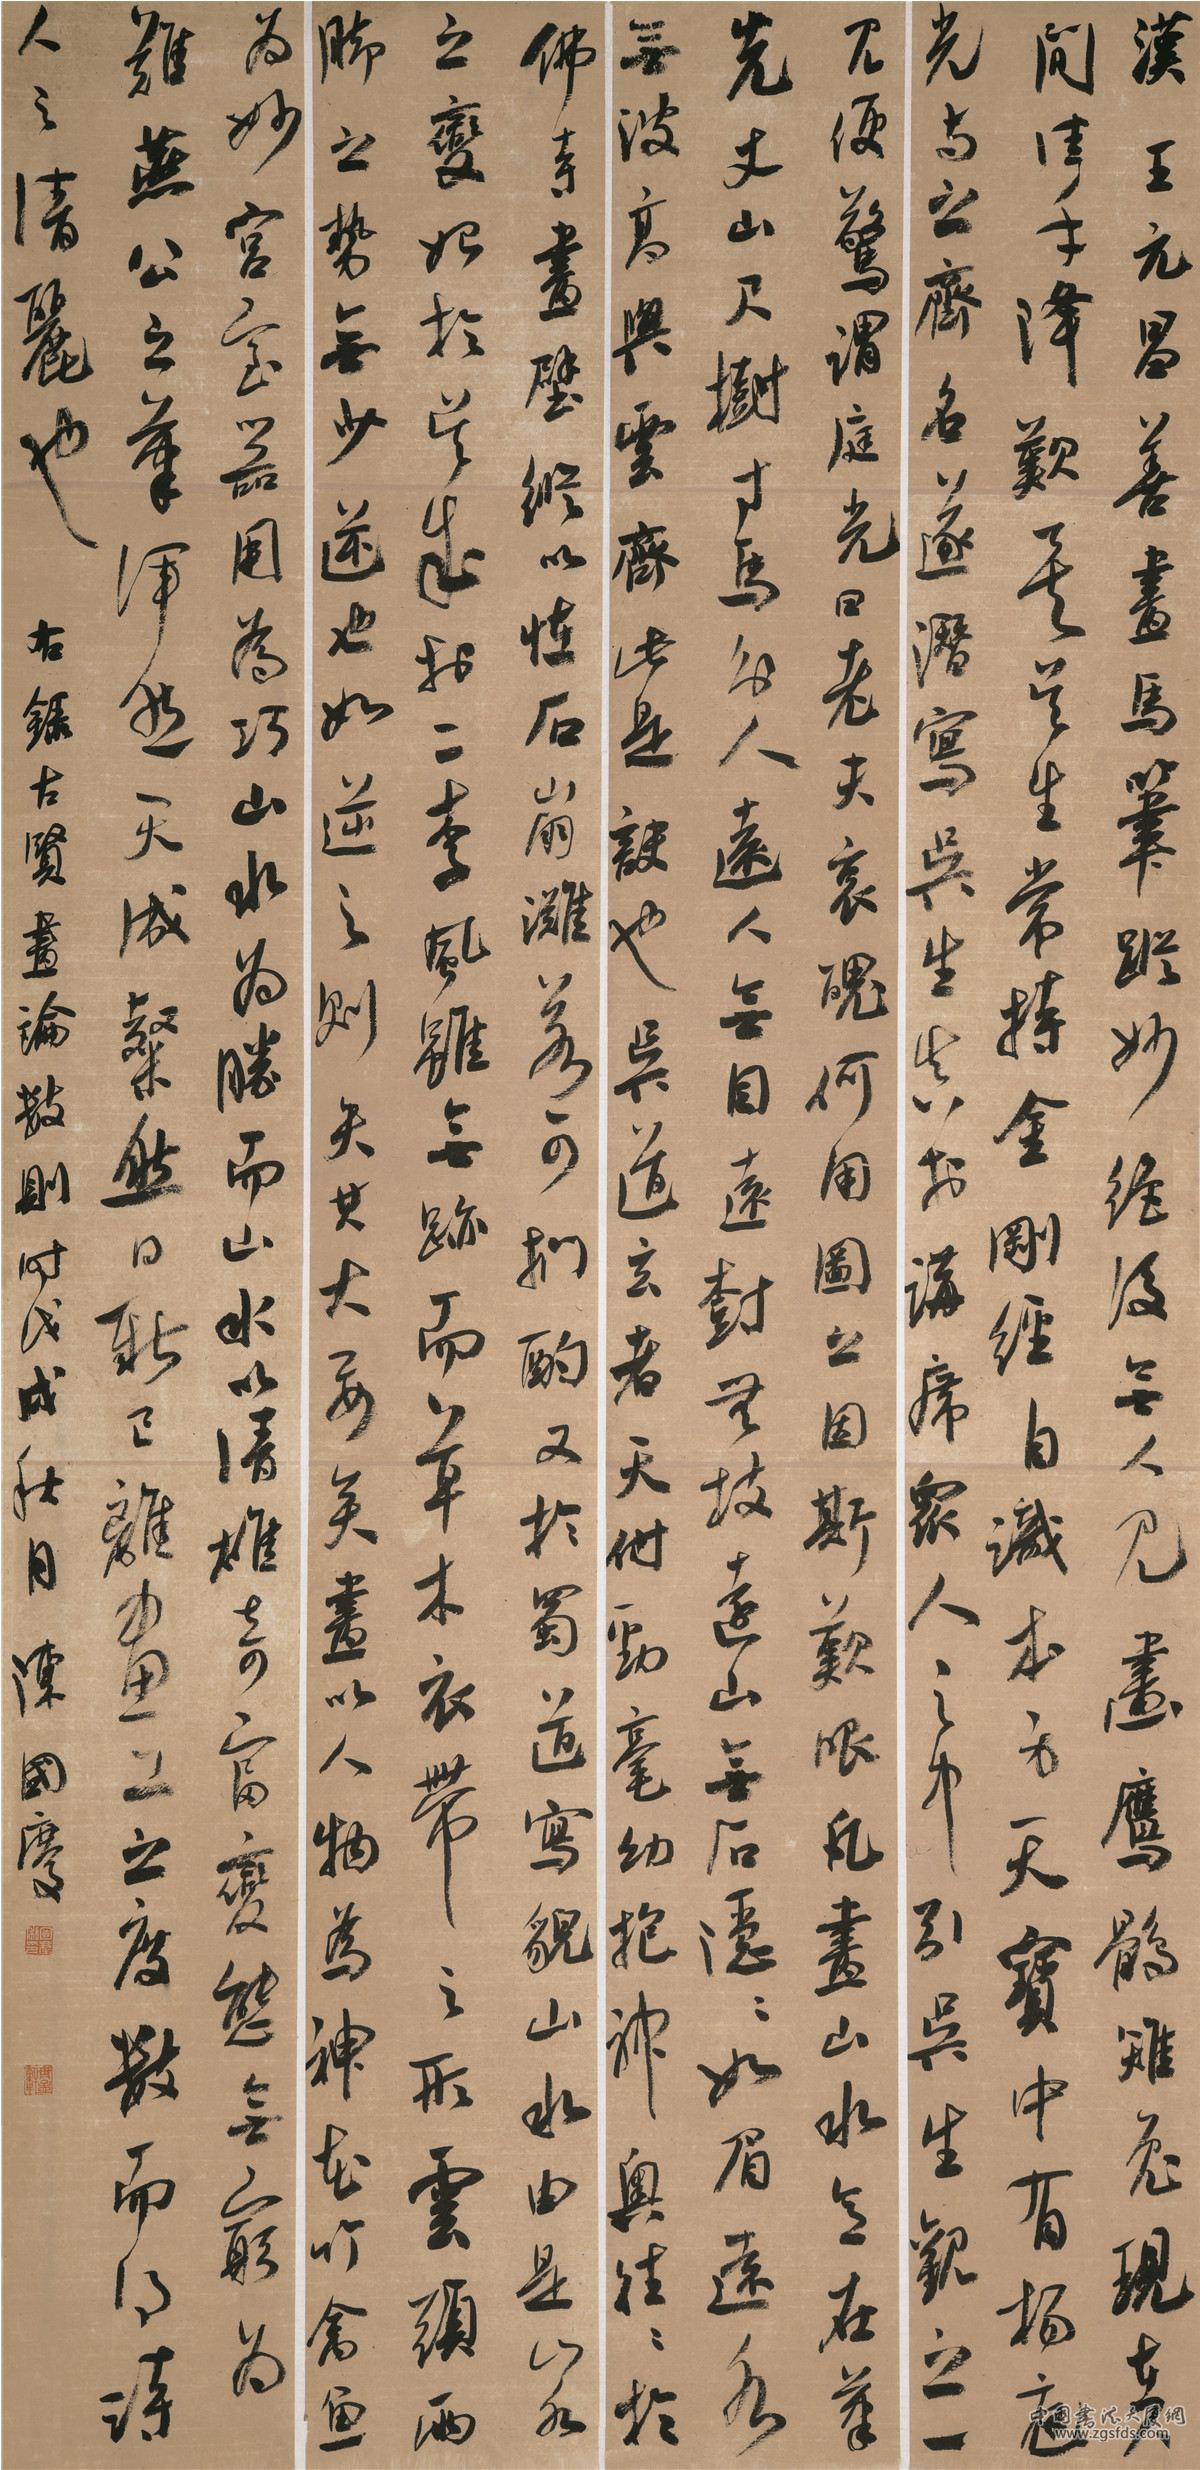 漢王元昌善畫馬筆蹤妙絕後無人見畫鷹鶻雉兔現在人
間佳手降歎吳道生常持金剛經自識本身天寶中有楊庭
光與之齊名遂潛寫吳生真於講席眾人之中引吳生觀之一
見便驚謂庭光曰老夫衰醜何用圖之因斯歎服凡畫山水意在筆
先丈山尺樹寸馬分人遠人無目遠樹無枝遠山無石隱隱如眉遠水
無波高與雲齊此是訣也吳道玄者天付勁毫幼抱神奧往往於
佛寺畫壁縱以怪石崩灘若可捫酌又於蜀道寫貌山水由是山水
之變始於吳成於二李風雖無跡而草木衣帶之形雲頭雨
腳之勢無少逆也如逆之則失其大要矣畫以人物為神花竹禽魚
為妙宮室器用為巧山水為勝而山水以清雄奇富變態無窮為
難燕公之筆渾然天成粲然日新已離畫工之度數而得詩
人之清麗也
右錄古賢畫論數則時戊戌秋月陳國慶
中国书法大展網
www.zgsfds.com